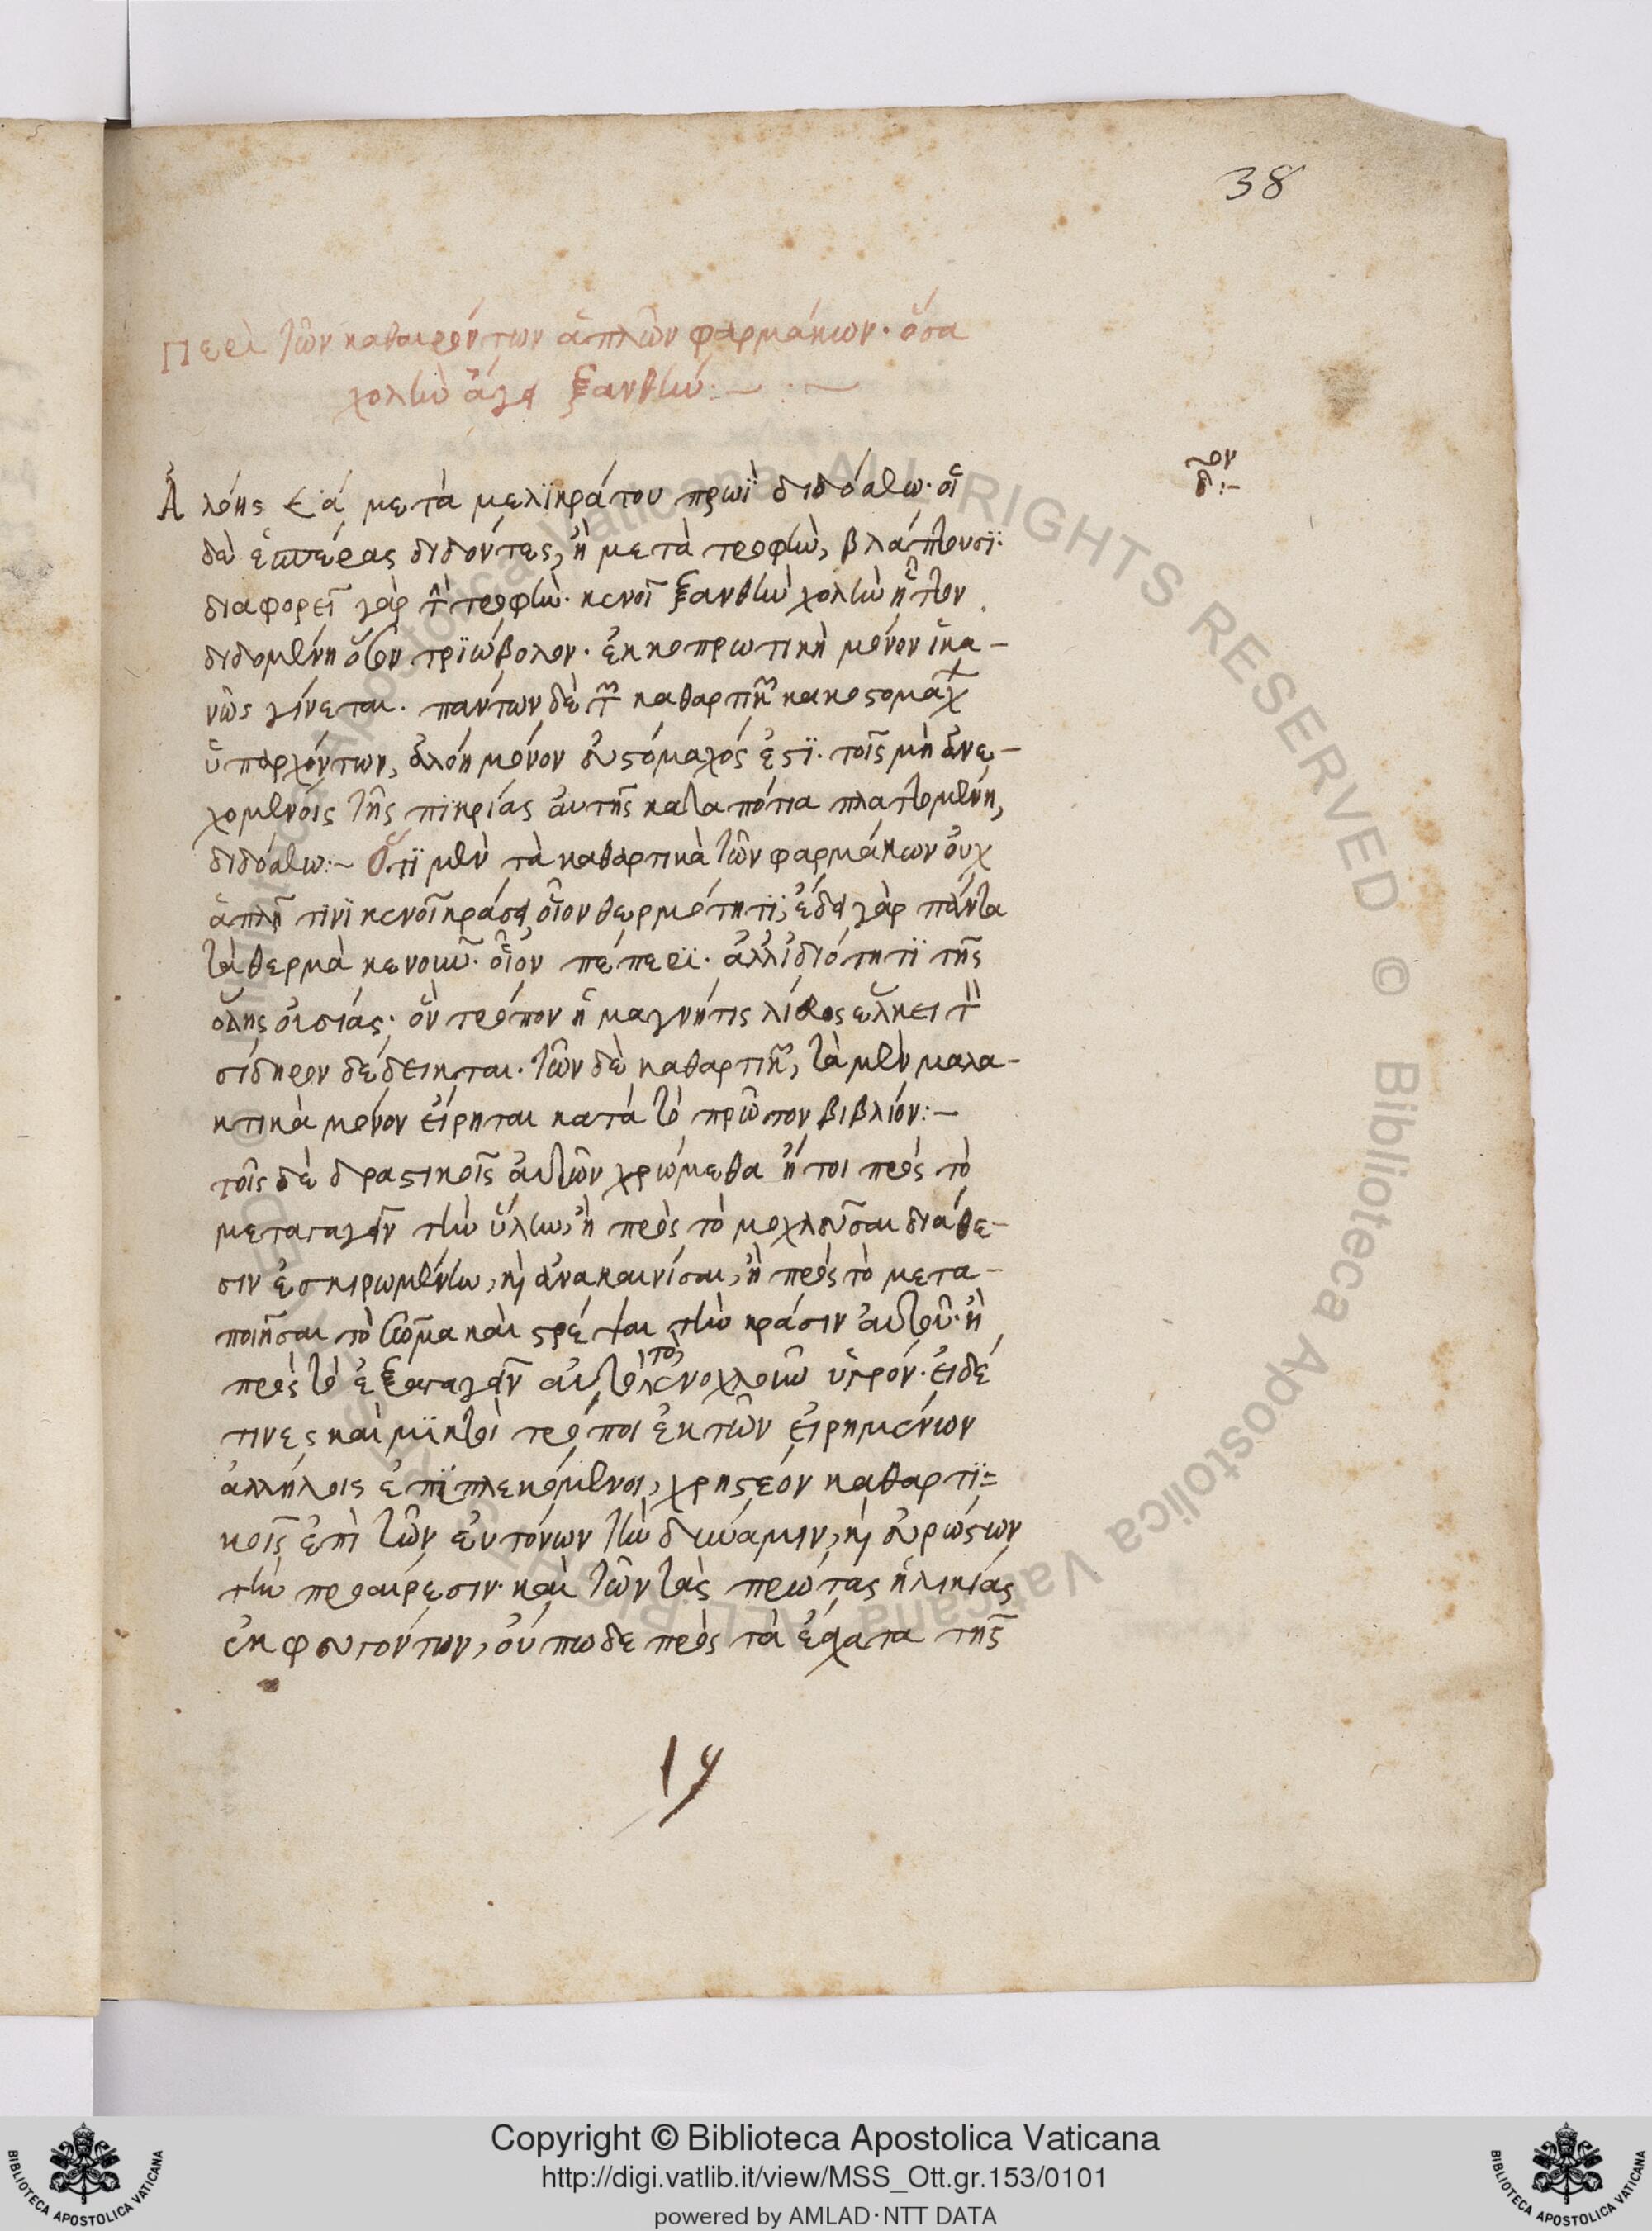 38
Περὶ τῶν καθαιρόντων ἁπλῶν φαρμάκων· ὅσα
χολὴν ἄγει ξανθήν:—
ον
Ἀλόης 𐅻 ά μετὰ μελϊκράτου πρωῒ διδόσθω· οἱ
δὲ ἑσπέρας διδόντες, ἢ μετὰ τροφὴν, βλάπτουσϊ·
διαφορεῖ γὰρ τὴν τροφὴν· κενοῖ ξανθὴν χολὴν ἧττον
διδομένη ὅσον τρϊώβολον· ἐκκοπρωτικὴ μόνον ἱκα-
νῶς γίνεται· πάντων δὲ τῶν καθαρτικῶν κακοστομάχων
ὑπαρχόντων, ἀλόη μόνον εὐστόμαχός ἐστϊ· τοῖς μὴ ἀνε-
χομένοις τῆς πικρίας ἀυτῆς καταπότια πλαττομένη,
διδόσθω:~ Ὅτϊ μὲν τὰ καθαρτικὰ τῶν φαρμάκων οὐχ
ἁπλῆ τινὶ κενοῖ κράσει, οἷον θερμότητϊ, ἔδει γὰρ πάντα
τὰ θερμὰ κενοῦν· οἷον πέπερϊ· ἀλλ' ἰδιότητϊ τῆς
ὅλης οὐσίας· ὃν τρόπον ἡ μαγνήτις λίθος ἕλκει τὸν
σίδηρον δέδεικται· τῶν δὲ καθαρτικῶν, τὰ μὲν μαλα-
κτικὰ μόνον εἴρηται κατὰ τὸ πρῶτον βιβλίον:—
τοῖς δὲ δραστικοῖς ἀυτῶν χρώμεθα ἤτοι πρὸς τὸ
μεταγαγεῖν τὴν ὕλην, ἢ πρὸς τὸ μοχλεῦσαι διάθε-
σιν ἐσκιρωμένην, καὶ ἀνακαινίσαι, ἢ πρὸς τὸ μετα-
ποιῆσαι τὸ σῶμα καὶ τρέψαι τὴν κρᾶσιν ἀυτοῦ· ἢ
πρὸς τὸ ἐξαγαγεῖν ἀυτὸ τὸ ἐνοχλοῦν ὑγρόν· εἰ δέ
τινες καὶ μϊκτοὶ τρόποι ἐκ τῶν εἰρημένων
ἀλλήλοις ἐπϊπλεκόμενοι, χρηστέον καθαρτϊ=
κοῖς ἐπὶ τῶν εὐτόνων τὴν δύναμιν, καὶ εὐρώστων
τὴν προαίρεσιν· καὶ τῶν τὰς πρώτας ἡλικίας
ἐκφυγόντων, οὔπω δε πρὸς τὰ ἔσχατα τῆς
Copyright © Biblioteca Apostolica Vaticana
http://digi.vatlib.it/view/MSS_Ott.gr.153/0101
powered by AMLAD·NTT DATA
BIBLIOTECA APOSTOLICA VATICANA
BIBLIOTECA APOSTOLICA VATICANA